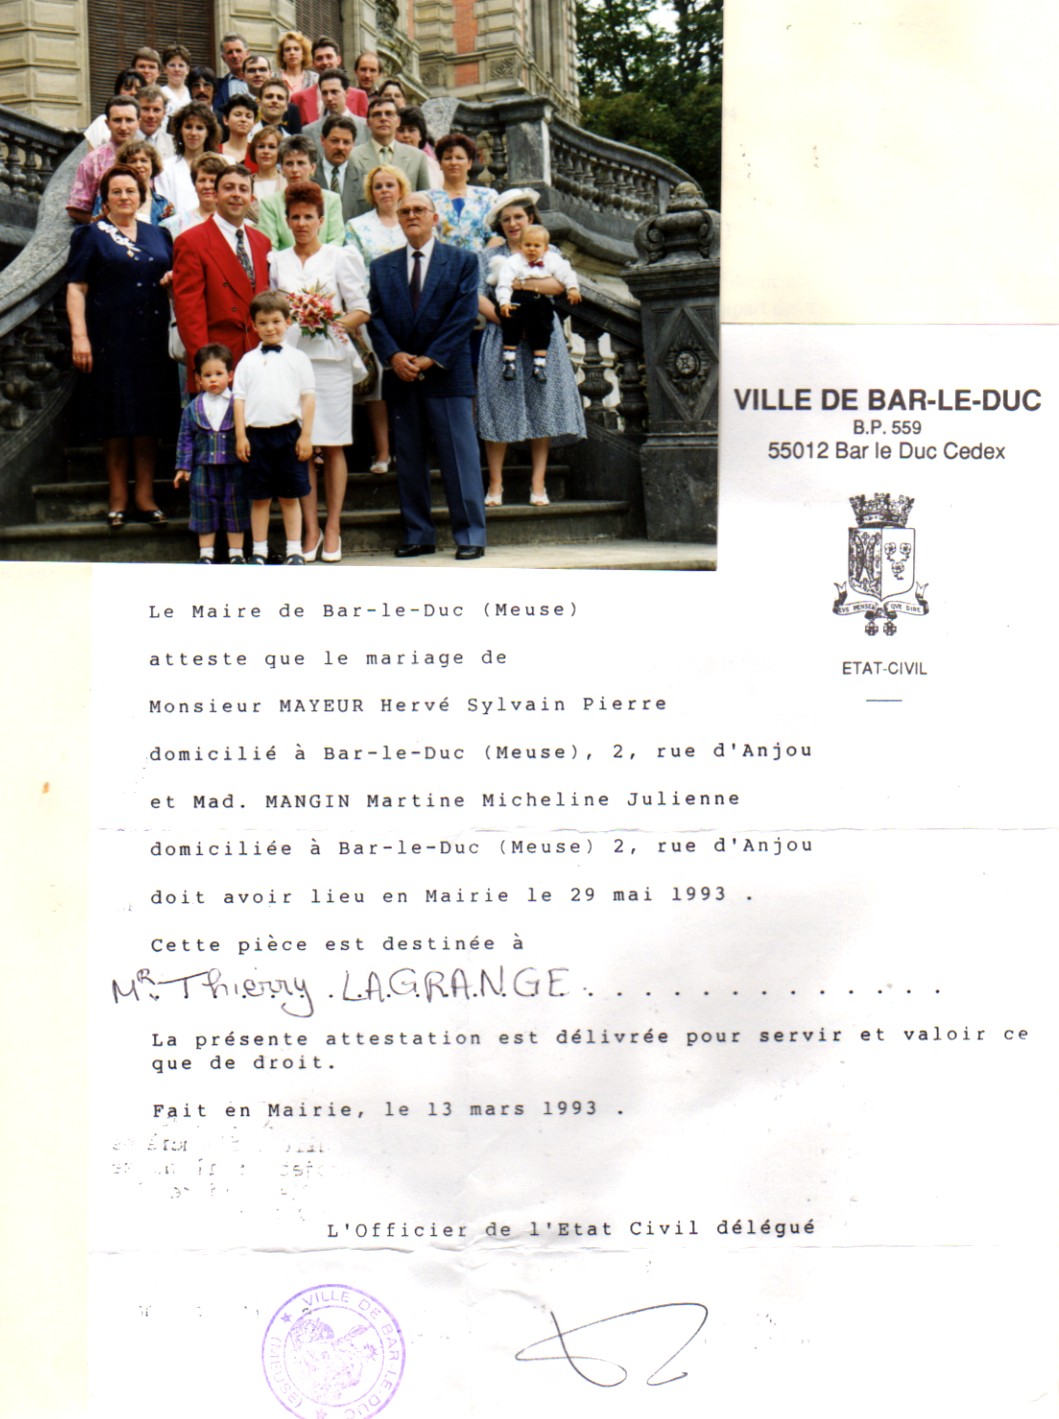 VILLE DE BAR-LE-DUC
B.P. 559
55012 Bar le Duc Cedex
PLUS PENSER QUE DIRE
ETAT-CIVIL
Le Maire de Bar-le-Duc (Meuse)
atteste que le mariage de
Monsieur MAYEUR Hervé Sylvain Pierre
domicilié à Bar-le-Duc (Meuse), 2, rue d'Anjou
et Mad. MANGIN Martine Micheline Julienne
domiciliée à Bar-le-Duc (Meuse) 2, rue d'Anjou
doit avoir lieu en Mairie le 29 mai 1993 .
Cette pièce est destinée à
MR. Thierry LAGRANGE . . . . . . . . . . . . .
La présente attestation est délivrée pour servir et valoir ce
que de droit.
Fait en Mairie, le 13 mars 1993 .
L'Officier de l'Etat Civil délégué
VILLE DE BAR-LE-DUC (MEUSE)